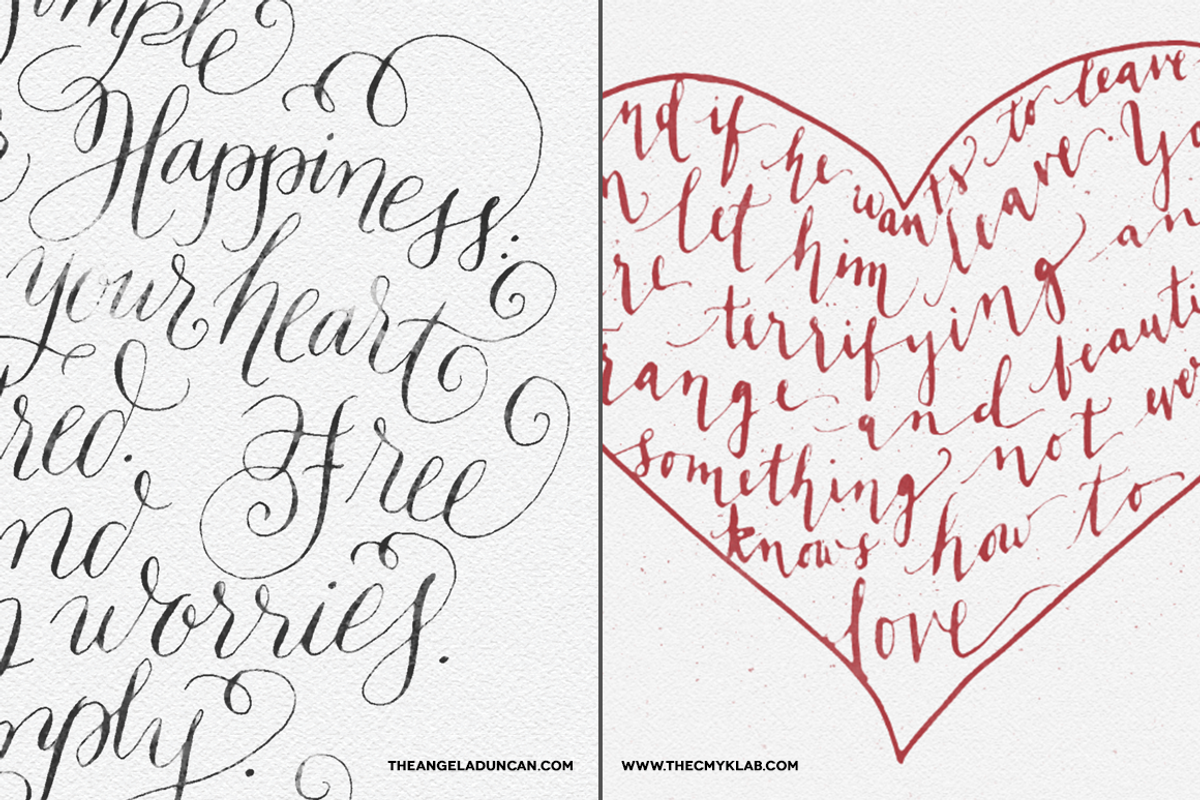 simple
Happiness:
your heart
red. Free
nd
worries.
mply.
THEANGELADUNCAN.COM
nd if he wants to leave
n let him leave. Yo
re terrifying an
range and beauti
something not ever
knows how to
love
WWW.THECMYKLAB.COM